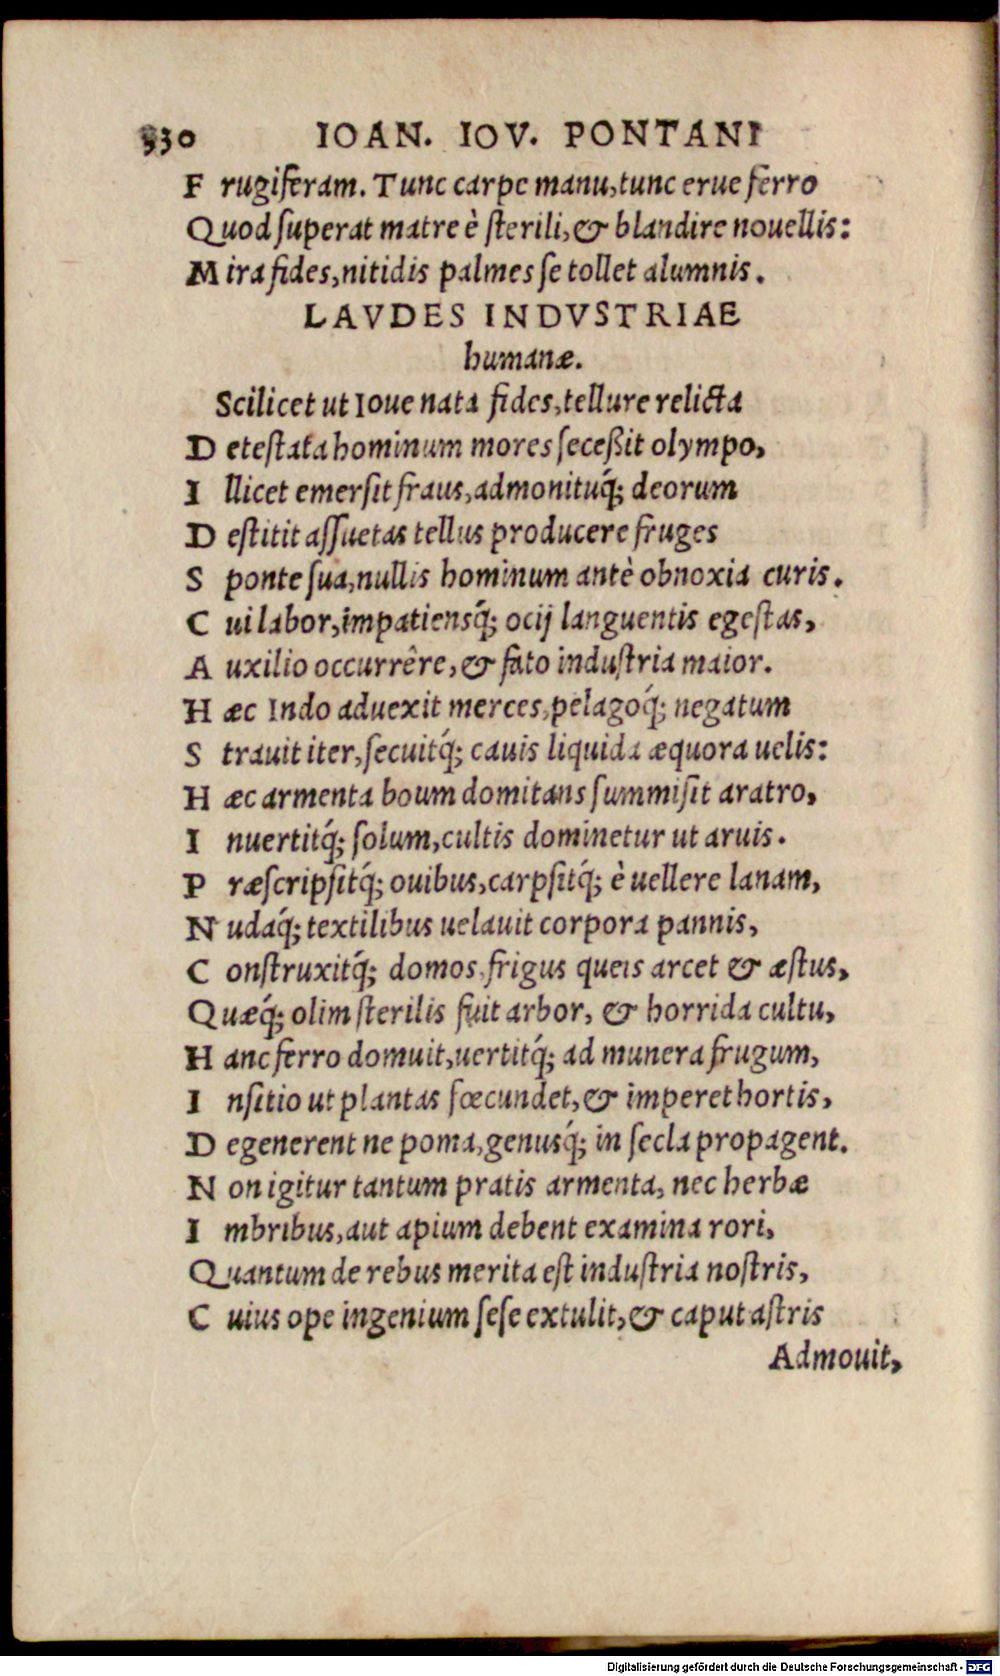 530 IOAN. IOV. PONTANI
F rugiferam. Tunc carpe manu, tunc erue ferro
Quod ſuperat matre è ſterili, & blandire nouellis:
M ira fides, nitidis palmes ſe tollet alumnis.
LAVDES INDVSTRIAE
humanæ.
Scilicet ut Ioue nata fides, tellure relicta
D eteſtata hominum mores ſeceßit olympo,
I llicet emerſit fraus, admonituq́; deorum
D eſtitit aſſuetas tellus producere fruges
S ponte ſua, nullis hominum antè obnoxia curis.
C ui labor, impatiensq́; ocij languentis egeſtas,
A uxilio occurrêre, & fato induſtria maior.
H æc Indo aduexit merces, pelagoq́; negatum
S trauit iter, ſecuitq́; cauis liquida æquora uelis:
H æc armenta boum domitans ſummiſit aratro,
I nuertitq́; ſolum, cultis dominetur ut aruis.
P ræſcripſitq́; ouibus, carpſitq́; è uellere lanam,
N udaq́; textilibus uelauit corpora pannis,
C onſtruxitq́; domos, frigus queis arcet & æſtus,
Quæq́; olim ſterilis fuit arbor, & horrida cultu,
H anc ferro domuit, uertitq́; ad munera frugum,
I nſitio ut plantas fœcundet, & imperet hortis,
D egenerent ne poma, genusq́; in ſecla propagent.
N on igitur tantum pratis armenta, nec herbæ
I mbribus, aut apium debent examina rori,
Quantum de rebus merita eſt induſtria noſtris,
C uius ope ingenium ſeſe extulit, & caput aſtris
Admouit,
Digitalisierung gefördert durch die Deutsche Forschungsgemeinschaft - DFG